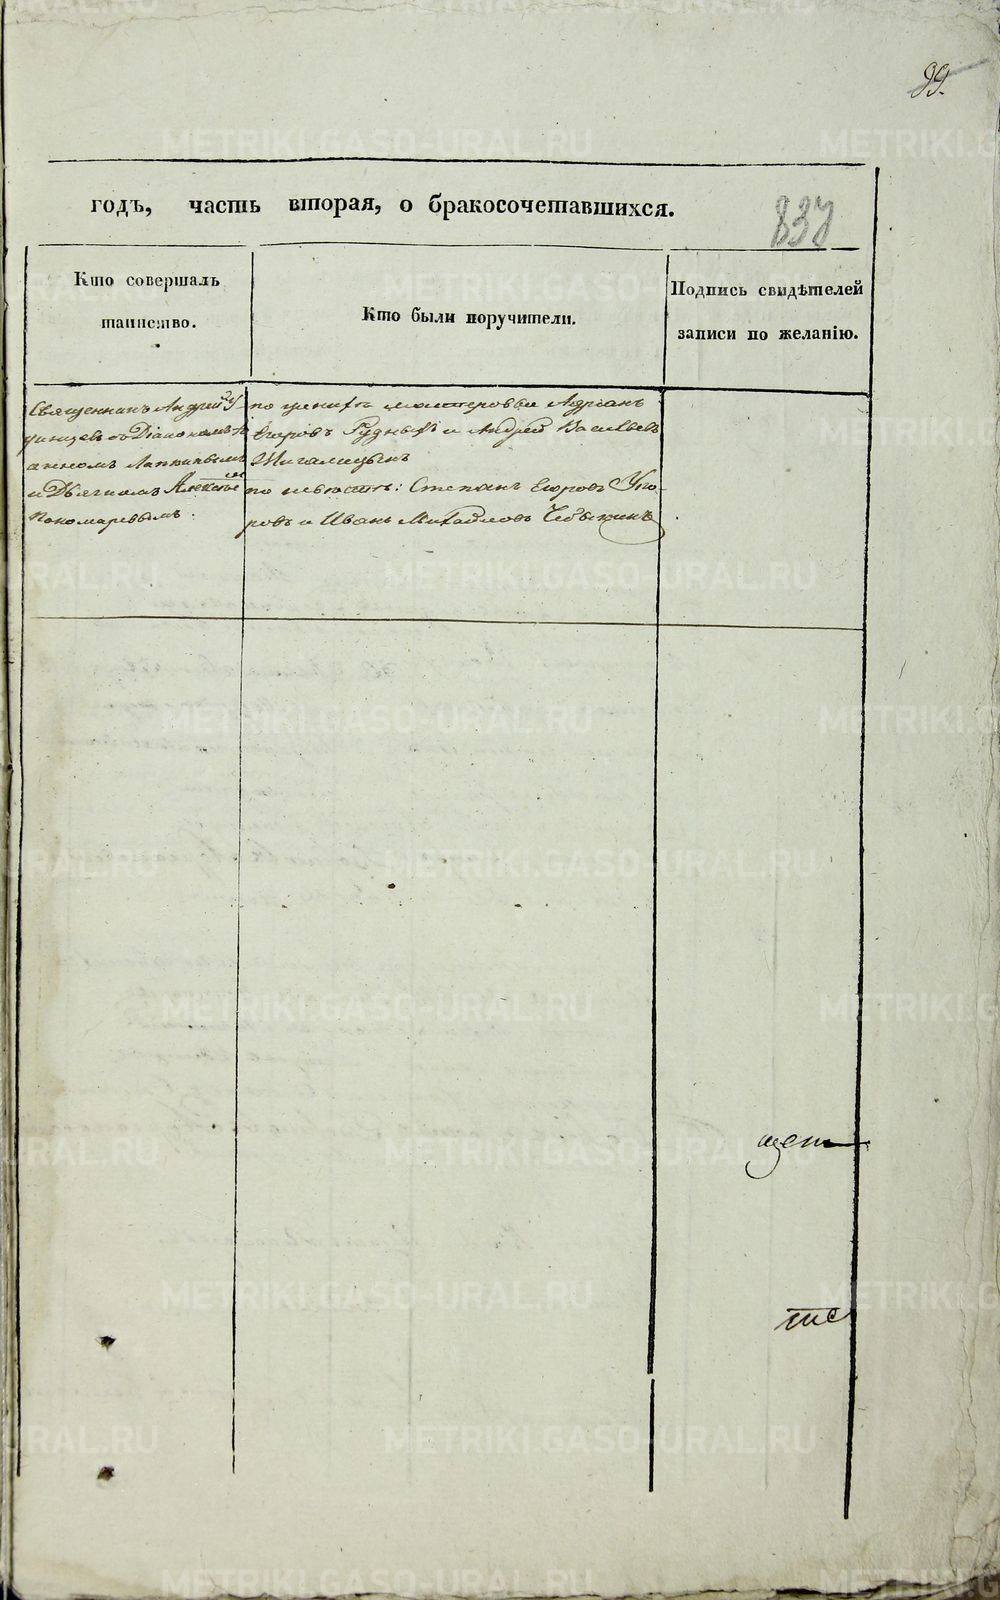 99.
годъ, часть вторая, о бракосочетавшихся.
837
Кто совершалъ
таинство.
Кто были поручители.
Подпись свидѣтелей
записи по желанію.
Священникъ Андрей У
динцевъ съ Діакономъ І
анномъ Лапинымъ
и Дьячкомъ Алексѣемъ
Пономаревымъ.
по женихѣ мастеровые Адріанъ
Егоровъ Рудныхъ и Андрей Васильевъ
Шигалицынъ
по невѣстѣ: Степанъ Егоровъ Упо-
ровъ и Иванъ Михайловъ Чебыкинъ
METRIKI.GASO-URAL.RU